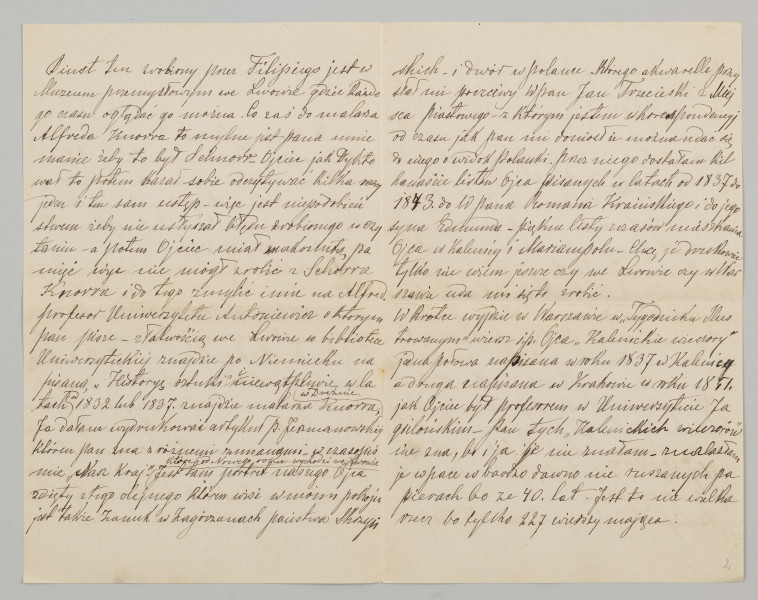 Biust ten zrobiony przez Filipiego jest w
Muzeum przemysłowym we Lwowie gdzie każde
go czasu oglądać go można. Co zaś do malarza
Alfreda Knorra to mylne jest pana mnie
manie żeby to był Schnorr. Ojciec jak dykto
wał to potem kazał sobie odczytywać kilka razy
jeden i ten sam ustęp - więc jest niepodobień
stwem żeby nie usłyszał błędu zrobionego w czy
taniu - a potem Ojciec miał znakomitą pa
mięć więc nie mógł zrobić z Schorra
Knorra i do tego zmylić imie na Alfred
profesor Uniwersytetu Antoniewicz o którym
pan pisze - z łatwością we Lwowie w bibliotece
Uniwersyteckiej znajdzie po Niemiecku na
pisaną "Historyę sztuki" i niewątpliwie w la
tach 1832 lub 1837. znajdzie malarza Knorra,
w Dreźnie
Ja dałam wydrukować artykuł p. Giermanowskiej
którem pan zna z różnemi zmianami - w czasopiś
mie "Nasz Kraj" jest tam portret naszego Ojca
które od Nowego roku wychodzi we Lwowie
zdjęty z tego olejnego które wisi w moim pokoju
jest także Zamek w Zagórzanach państwa Skrzyń
skich - i dwór w Polance - którego akwarelle przy
słał mi poczciwy Wpan Jan Trzecieski z Miej
sca Piastowego - z którym jestem w korespondencyi
od czasu jak pan mi doniosł iż można udać się
do niego o widok Polanki. Przez niego dostałam kil
kanaście listów Ojca pisanych w latach od 1837 do
1843. do Wpana Romana Kraińskiego i do jego
syna Edmunda - piękne listy z czasów mieszkania
Ojca w Kalenicy i Mariampolu - Chcę je drukować
tylko nie wiem jeszcze czy we Lwowie czy w War
szawie uda mi się to zrobić.
W krótce wyjdzie w Warszawie w "Tygodniku Illus
trowanym" wiersz śp. Ojca "Kalenickie wieczory"
jedna połowa napisana w roku 1837 w Kalenicy
a druga napisana w Krakowie w roku 1851.
jak Ojciec był profesorem w Uniwersytecie Ja
gielońskim - Pan tych "Kalenickich wieczorów"
nie zna, bo i ja je nie znałam - znalazłam
je w pace w bardzo dawno nie ruszanych pa
pierach bo ze 40. lat. Jest to nie wielka
rzecz bo tylko 227 wierszy mająca.
2